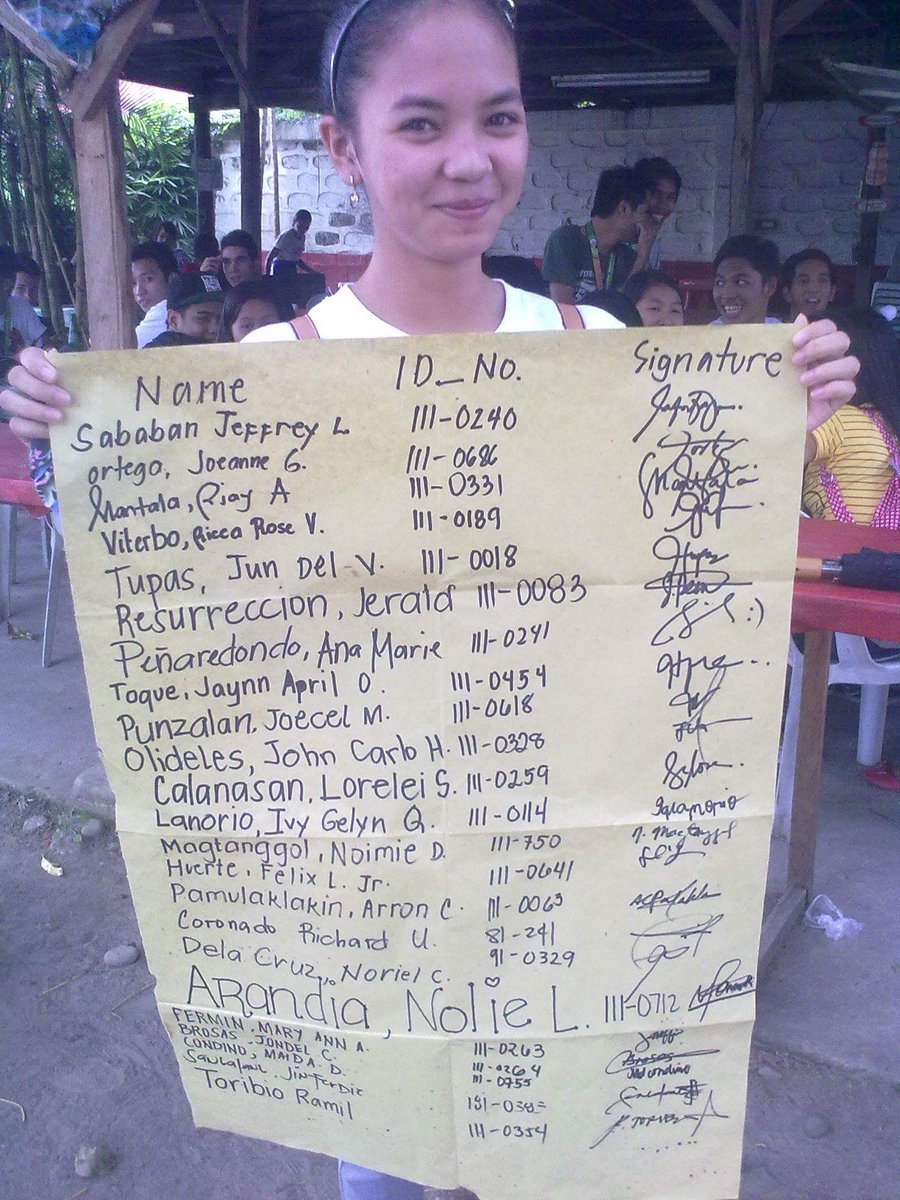 Name ID_No. Signature
Sababan Jeffrey L. 111-0240
Ortega, Joeanne G. 111-0686
Mantala, Rjay A 111-0331 Mantala
Viterbo, Ricca Rose V. 111-0189
Tupas, Jun Del V. 111-0018
Resurreccion, Jerald 111-0083
Peñaredondo, Ana Marie 111-0241 :)
Toque, Jaynn April O. 111-0454
Punzalan, Joecel M. 111-0618
Olideles, John Carlo H. 111-0328
Calanasan, Lorelei S. 111-0259
Lanorio, Ivy Gelyn Q. 111-0114
Magtanggol, Noimie D. 111-750
Huerte, Felix L. Jr. 111-0641
Pamulaklakin, Arron C. 111-0063
Coronado Richard U. 81-241
Dela Cruz, Noriel C. 91-0329
Arandia, Nolie L. 111-0712
FERMIN, MARY ANN A. 111-0263
BROSAS, JONDEL C. 111-0264 Brosas
CONDINO, MAIDA D. 111-0755 Condino
Jin Ferdie
Toribio Ramil 111-0354